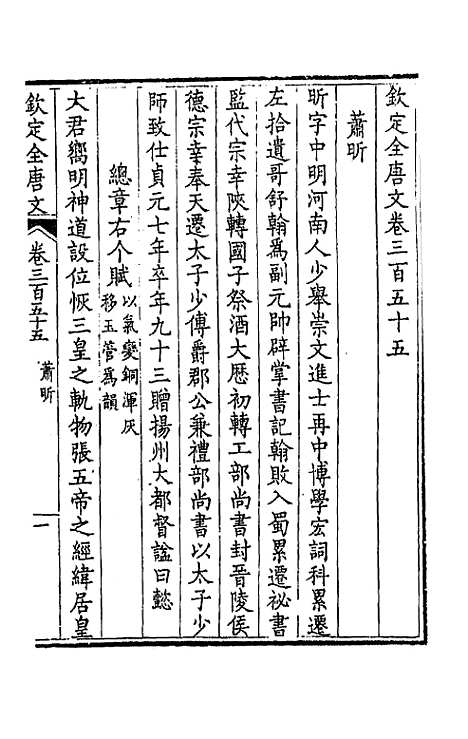 欽定全唐文卷三百五十五
蕭昕
昕字中明河南人少舉崇文進士再中博學宏詞科累遷
左拾遺哥舒翰爲副元帥辟掌書記翰敗入蜀累遷祕書
監代宗幸陝轉國子祭酒大厯初轉工部尚書封晉陵侯
德宗幸奉天遷太子少傅爵郡公兼禮部尚書以太子少
師致仕貞元七年卒年九十三贈揚州大都督諡曰懿
總章右个賦以氣變銅渾灰
移玉管爲韻
大君嚮明神道設位恢三皇之軌物張五帝之經緯居皇
欽定全唐文 卷三百五十五 蕭昕 一